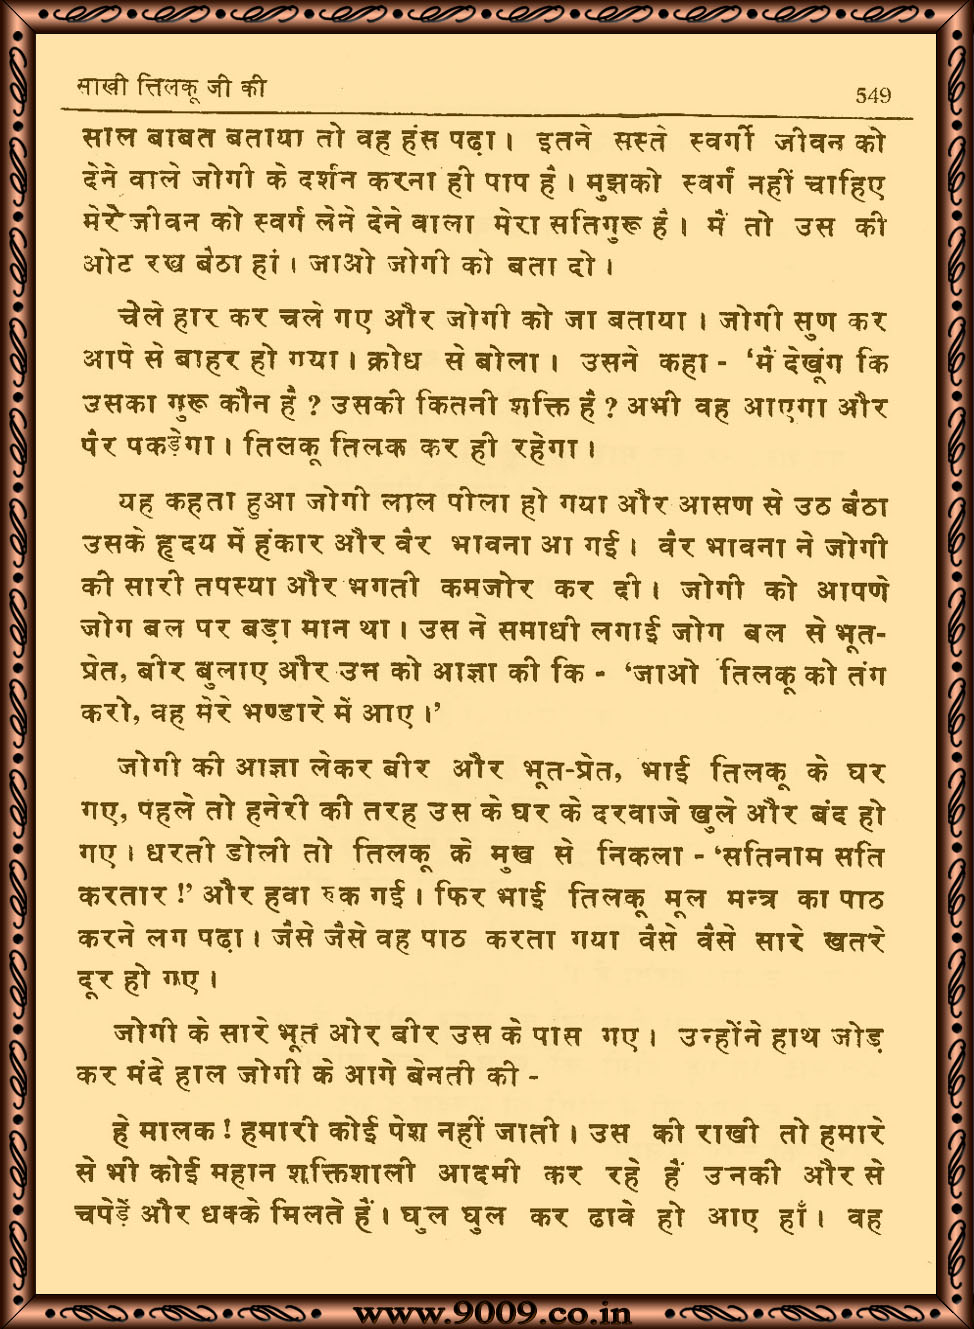 साखी तिलकू जी की
549
साल बाबत बताया तो वह हंस पढ़ा। इतने सस्ते स्वर्गी जीवन को
देने वाले जोगी के दर्शन करना ही पाप है। मुझको स्वर्ग नहीं चाहिए
मेरे जीवन को स्वर्ग लेने देने वाला मेरा सतिगुरू है। मैं तो उस की
ओट रख बैठा हां। जाओ जोगी को बता दो।
चेले हार कर चले गए और जोगी को जा बताया। जोगी सुण कर
आपे से बाहर हो गया। क्रोध से बोला। उसने कहा - ‘मैं देखूंग कि
उसका गुरू कौन है ? उसकी कितनी शक्ति है ? अभी वह आएगा और
पैर पकड़ेगा। तिलकू तिलक कर ही रहेगा।
यह कहता हुआ जोगी लाल पीला हो गया और आसण से उठ बैठा
उसके हृदय में हंकार और वैर भावना आ गई। वैर भावना ने जोगी
की सारी तपस्या और भगती कमजोर कर दी। जोगी को आपणे
जोग बल पर बड़ा मान था। उस ने समाधी लगाई जोग बल से भूत-
प्रेत, बीर बुलाए और उन को आज्ञा की कि - ‘जाओ तिलकू को तंग
करो, वह मेरे भण्डारे में आए।’
जोगी की आज्ञा लेकर बीर और भूत-प्रेत, भाई तिलकू के घर
गए, पहले तो हनेरी की तरह उस के घर के दरवाजे खुले और बंद हो
गए। धरती डोली तो तिलकू के मुख से निकला - ‘सतिनाम सति
करतार !’ और हवा रुक गई। फिर भाई तिलकू मूल मन्त्र का पाठ
करने लग पढ़ा। जैसे जैसे वह पाठ करता गया वैसे वैसे सारे खतरे
दूर हो गए।
जोगी के सारे भूत ओर बीर उस के पास गए। उन्होंने हाथ जोड़
कर मंदे हाल जोगी के आगे बेनती की -
हे मालक ! हमारी कोई पेश नहीं जाती। उस की राखी तो हमारे
से भी कोई महान शक्तिशाली आदमी कर रहे हैं उनकी और से
चपेड़ें और धक्के मिलते हैं। घुल घुल कर ढावे हो आए हाँ। वह
www.9009.co.in